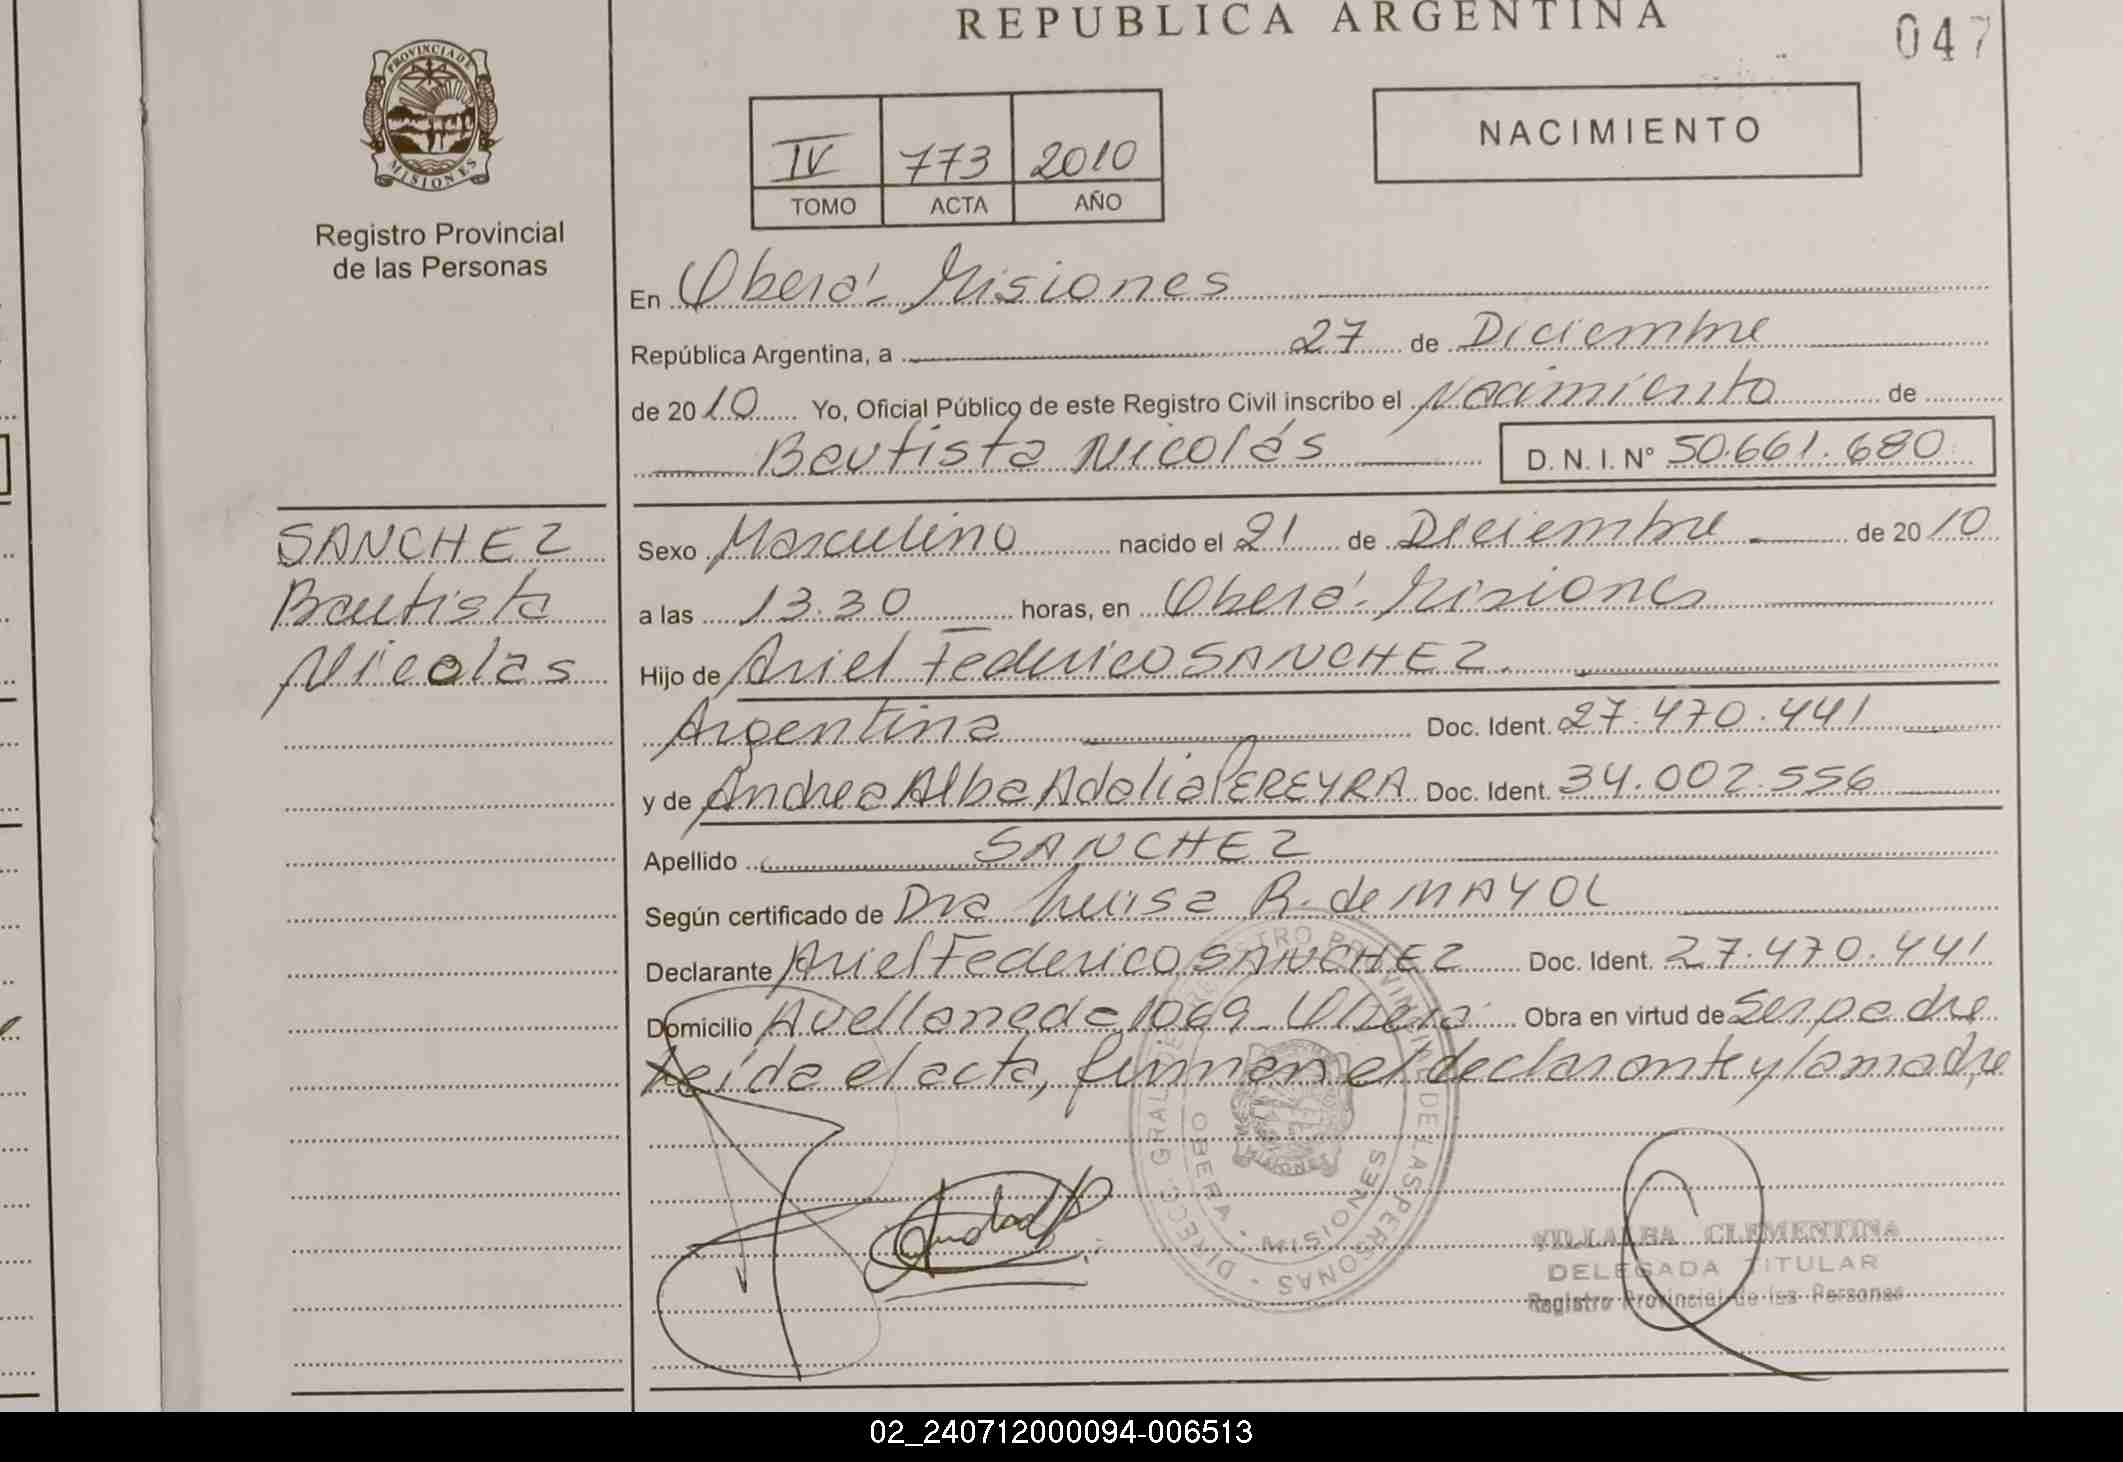 REPUBLICA ARGENTINA
047
PROVINCIA DE MISIONES
Registro Provincial
de las Personas
IV 773 2010
TOMO ACTA AÑO
NACIMIENTO
En Oberá - Misiones
República Argentina, a 27 de Diciembre
de 2010 Yo, Oficial Público de este Registro Civil inscribo el Nacimiento de
Bautista Nicolás D. N. I. N° 50.661.680
SANCHEZ
Bautista
Nicolas
Sexo Masculino nacido el 21 de Diciembre de 2010
a las 13.30 horas, en Oberá - Misiones
Hijo de Ariel Federico SANCHEZ
Argentina Doc. Ident. 27.470.441
y de Andrea Alba Adelia PEREYRA Doc. Ident. 34.002.556
Apellido SANCHEZ
Según certificado de Dra Luisa R. de MAYOL
Declarante Ariel Federico SANCHEZ Doc. Ident. 27.470.441
Domicilio Avellaneda 1069 - Oberá Obra en virtud de Ser padre
Leída el acta, firman el declarante y la madre
DIRECC. GRAL. DE REGISTRO PROVINCIAL DE LAS PERSONAS
OBERA - MISIONES
MISIONES
VILLALBA CLEMENTINA
DELEGADA TITULAR
Registro Provincial de las Personas
02_240712000094-006513